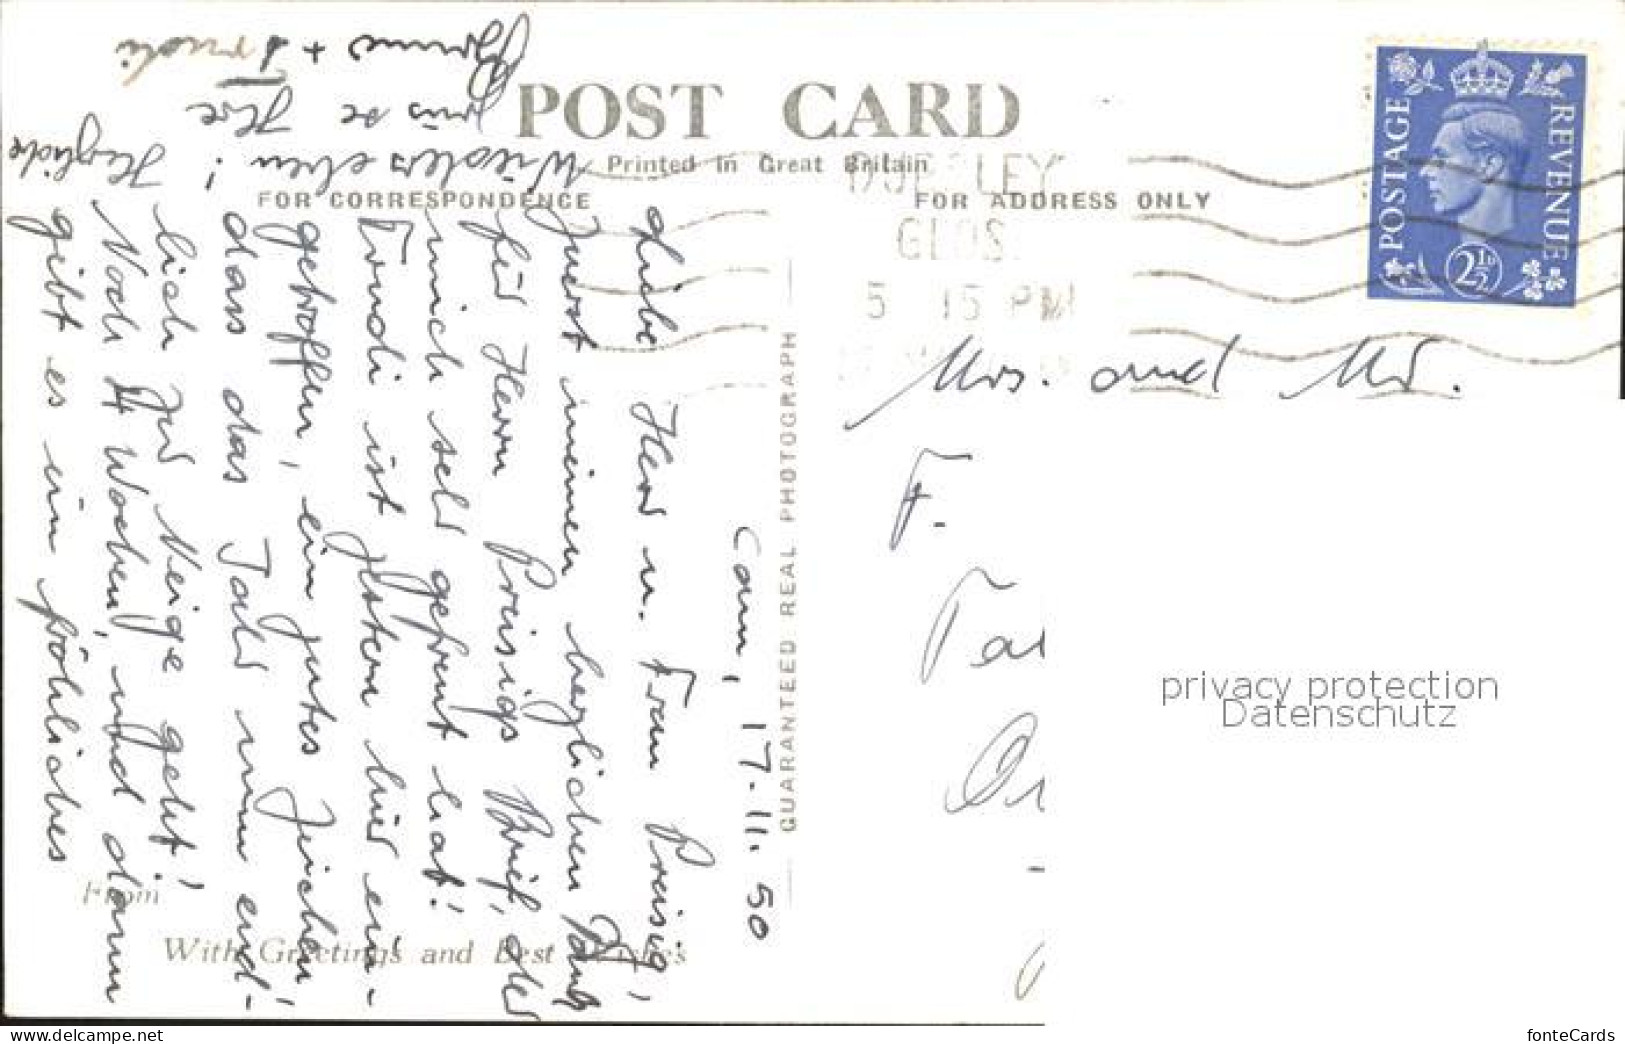 POST CARD
Printed in Great Britain
FOR CORRESPONDENCE
FOR ADDRESS ONLY
POSTAGE
REVENUE
2½
DURSLEY
GLOS.
5 15 PM
GUARANTEED REAL PHOTOGRAPH
Cam, 17. 11. 50
Liebe Herr u. Frau Preisig,
Zuerst meinen herzlichen Dank
für Herrn Preisigs Brief, der
mich sehr gefreut hat!
Trudi ist gestern hier ein-
getroffen, ein gutes Zeichen,
dass das Jahr nun end-
lich zur Neige geht!
Noch 4 Wochen, und dann
gibt es ein fröhliches
Wiedersehen! Herzliche
Ihre
+ Trudi
From
With Greetings and Best Wishes
Mrs. and Mr.
F.
privacy protection
Datenschutz
fonteCards